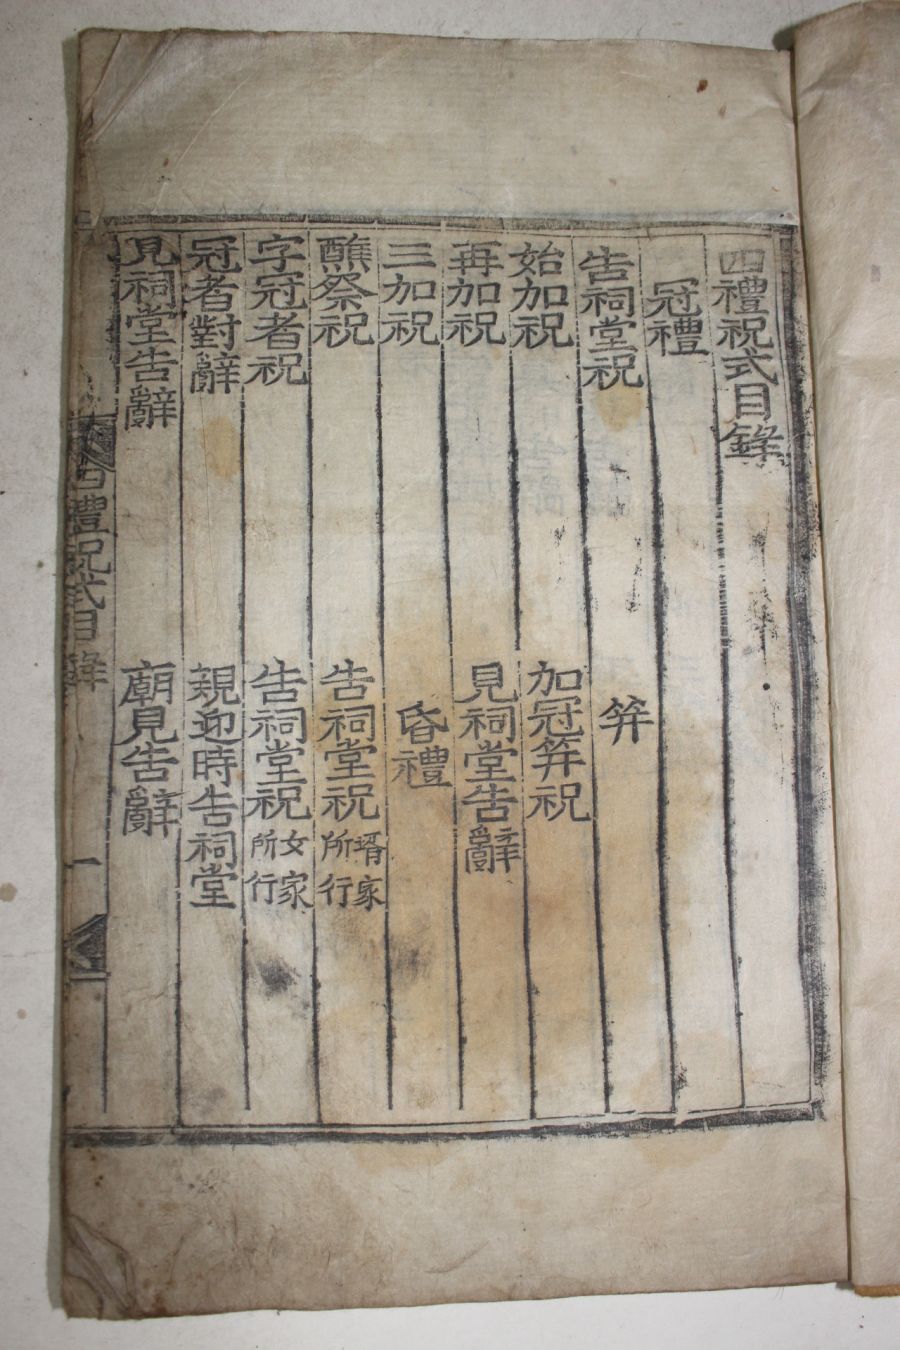 四禮祝式目錄
冠禮
告祠堂祝
始加祝
再加祝
三加祝
醮祭祝
字冠者祝
冠者對辭
見祠堂告辭
筓
加冠筓祝
見祠堂告辭
昏禮
告祠堂祝 壻家所行
告祠堂祝 女家所行
親迎時告祠堂
廟見告辭
四禮祝式目錄 一